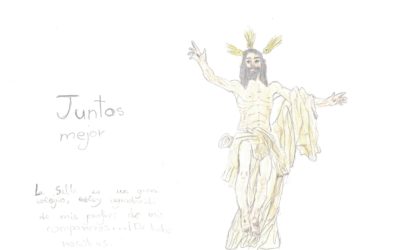 Juntos
mejor
La Salle es un gran
colegio, estoy
de mis profes de mis
compañeros
nosotros.